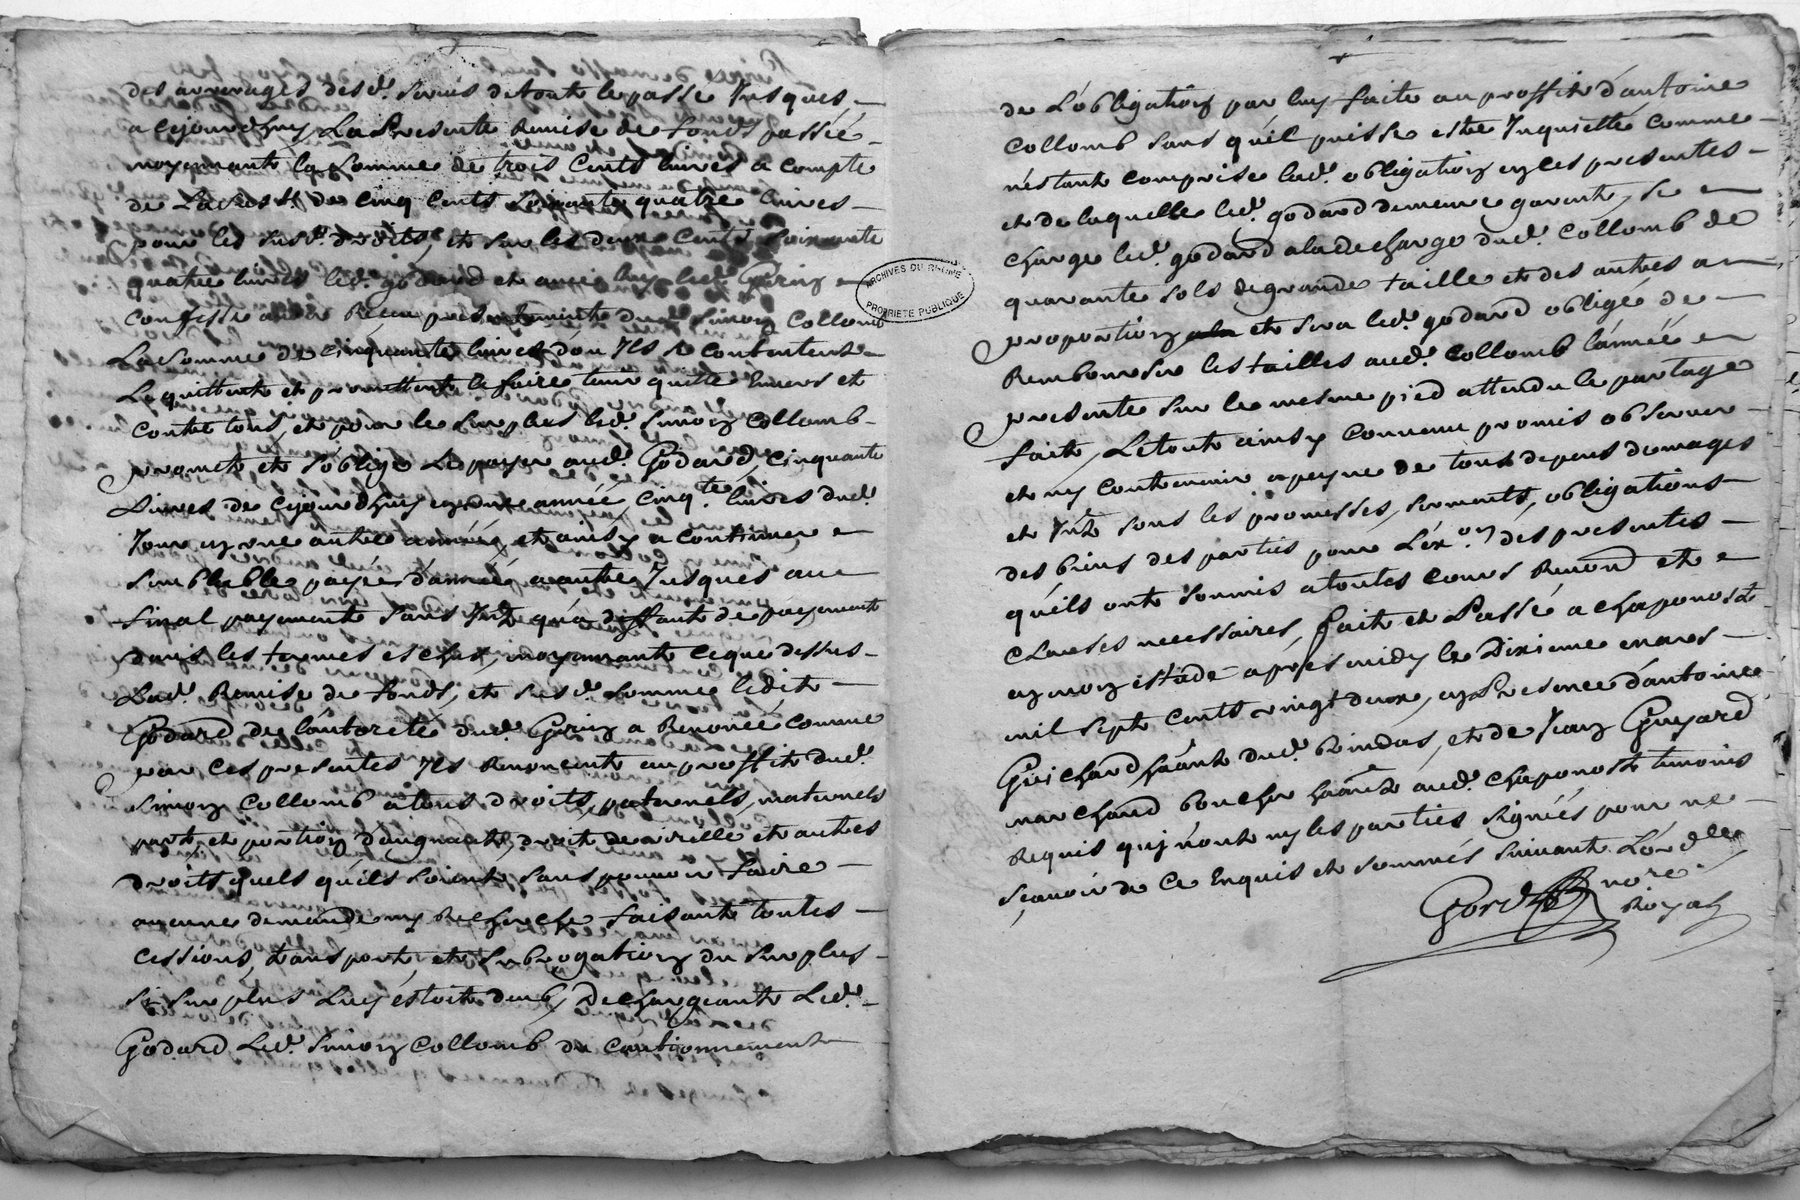 des arrerages desd. servis de toute le passé Jusques
a cejourdhuy La Presente Remise de fonds passée
moyennant la somme de trois Cents livres a compte
de Laquelle de Cinq Cents soixante quatre livres
pour les susd. droits, et sur les deux Cents soixante
quatre livres led. godard et avec luy led. Goriy
Confesse avoir Reçeu presentement dud. Simoy Collomb
La somme de Cinquante livres dou Jls se Contentent
Lequittent et promettent le faire tenir quitte Envers et
Contre tous, et pour le surplus led. Simoy Collomb
promet et s'oblige Le payer aud. Godard, Cinquante
Livres de Cejourdhuy eyune année, Cinq.te livres dud.
Jour ey une autre année, et ainsy a Continuer
semblable payé d'année a autre Jusques au
final payement sans Jnt qu'a deffaut de payement
dans les termes eschus, moyennant ceque dessus
Lad. Remise de fonds, et susd. somme ledit
Godard de l'autorete dud. Goriy a Renoncé comme
par ces presentes Jls Renoncent au proffit dud.
Simoy Collomb a tous droits, paternels, maternels
part, et portioy d'augment, droit de virille et autres
droits quels qu'ils soient, sans pouvoir faire
aucune demande ny Recherche faisant toutes
Cessions, transport, et subrogatioy du surplus
si surplus Luy estoit deub, Dechargeant Led.
Godard Led. Simoy Collomb du Cautionnement
ARCHIVES DU RHÔNE
PROPRIETE PUBLIQUE
de L'obligatioy par luy faite au proffit d'antoine
Collomb sans qu'il puisse estre Inquietté Comme
n'estant comprise lad. obligatioy ey les presentes
et de laquelle led. godard demeure garent, se
charge led. godard a la decharge dud. Collomb de
quarante sols de grande taille et des autres a
proportioy et sera led. godard obligé de
Rembourser les tailles aud. Collomb l'année
presente sur le mesme pied attendu le partage
fait, Le tout ainsy Convenu promis observer
et ny Contrevenir a peyne de tous depens domages
et Jnt sous les promesses, serments, obligations
des biens des parties pour L'ex.oy des presentes
qu'ils ont soumis a toutes Cours Renond et
Clauses necessaires, fait et Passé a Chaponost
ey moy estude apres midy le Dixieme mars
mil sept cents vingt deux, ey Presence d'antoine
Guichard hãant dud. Brindas, et de Jeay Guyard
marchand boucher hãant aud. Chaponost temoins
Requis quj n'ont ny les parties signées pour ne
sçavoir de ce Enquis et sommés suivant L'ord.ce
nore
Royal